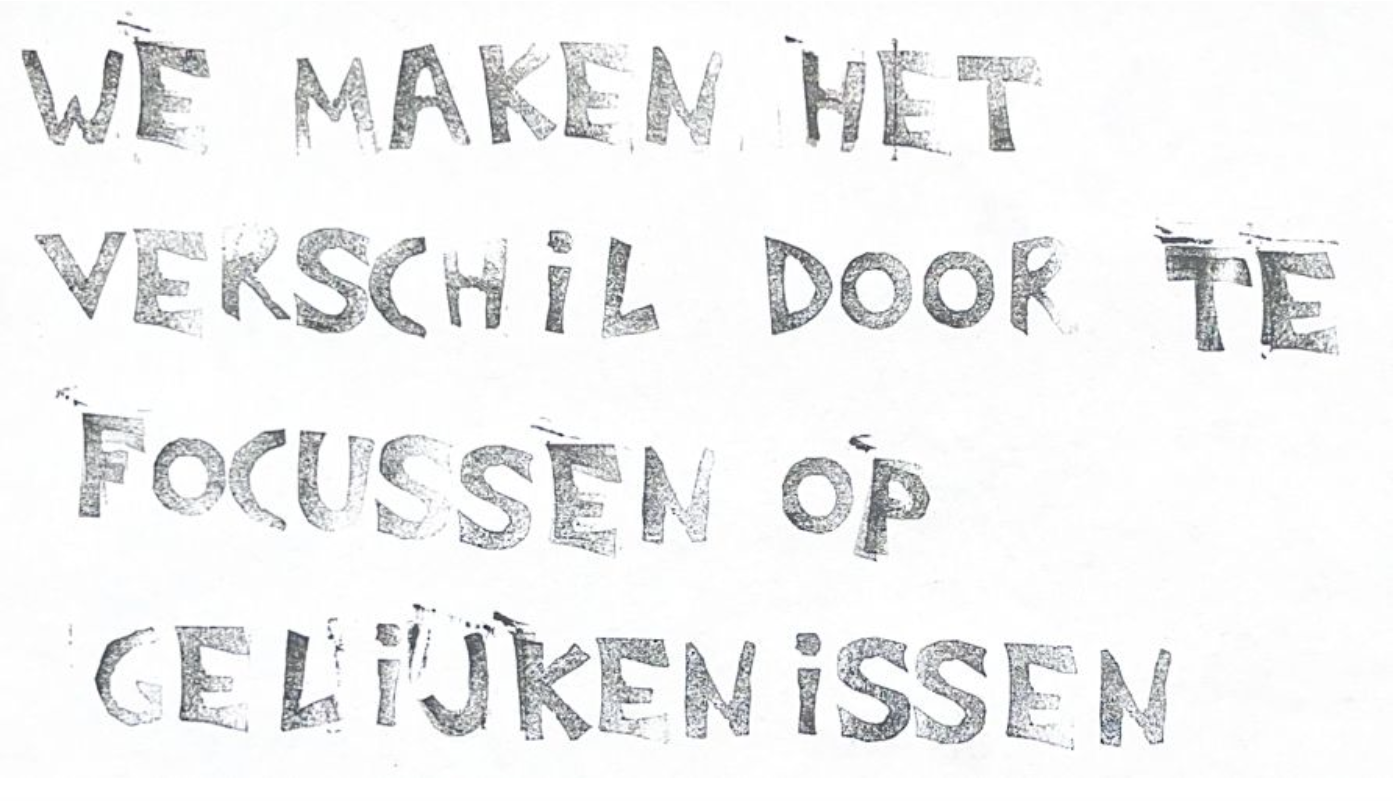 WE MAKEN HET
VERSCHiL DOOR TE
FOCUSSEN OP
GELiJKENiSSEN